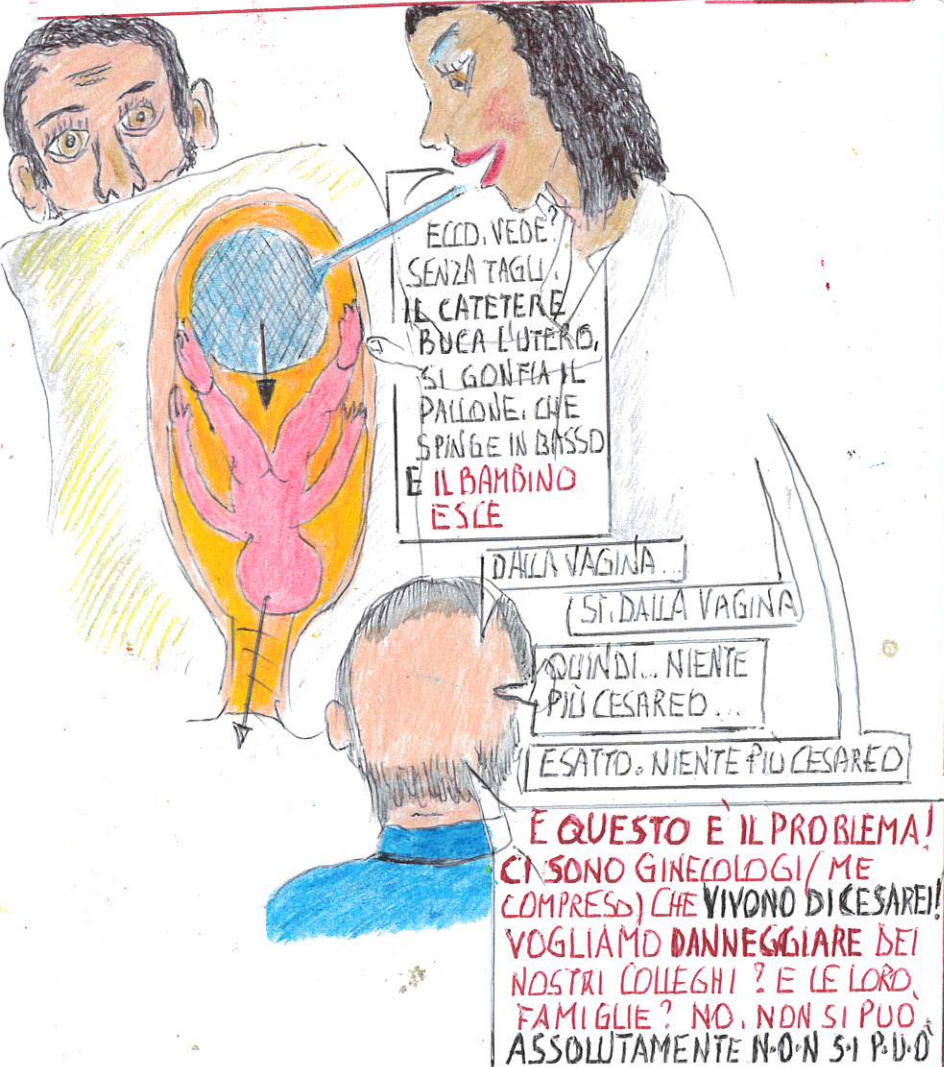 ECCO, VEDE?
SENZA TAGLI.
IL CATETERE
BUCA L'UTERO,
SI GONFIA IL
PALLONE, CHE
SPINGE IN BASSO
E IL BAMBINO
ESCE
DALLA VAGINA...
SÌ, DALLA VAGINA
QUINDI... NIENTE
PIÙ CESAREO...
ESATTO. NIENTE PIÙ CESAREO
E QUESTO È IL PROBLEMA!
CI SONO GINECOLOGI (ME
COMPRESO) CHE VIVONO DI CESAREI!
VOGLIAMO DANNEGGIARE DEI
NOSTRI COLLEGHI? E LE LORO
FAMIGLIE? NO, NON SI PUÒ
ASSOLUTAMENTE N·O·N S·I P·U·Ò